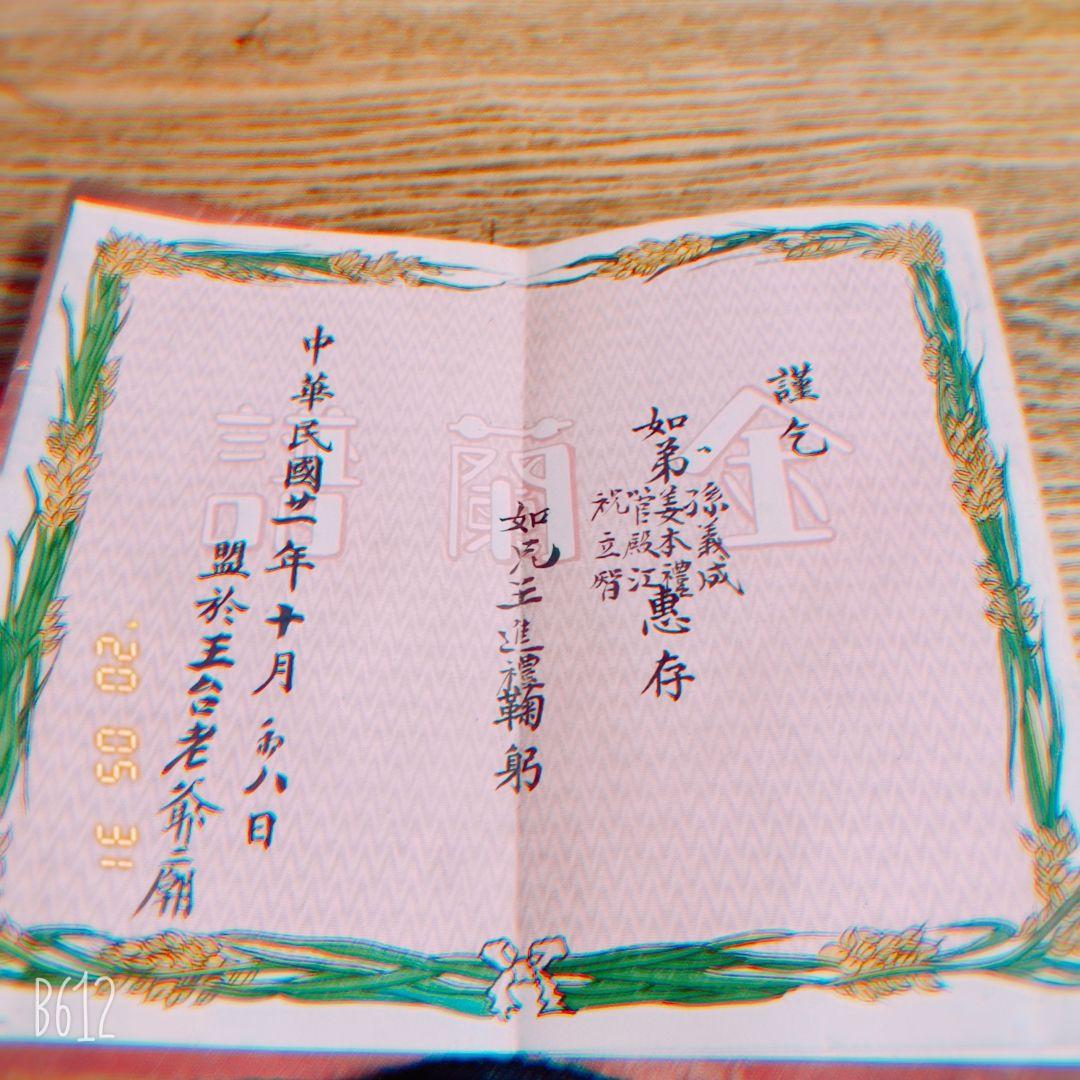 金蘭譜
謹乞
如弟
孫義成
姜本禮
管殿江
祝立智
惠存
如兄王進禮鞠躬
中華民國廿一年十月初八日
盟於王台老爺廟
'20 05 31
B612